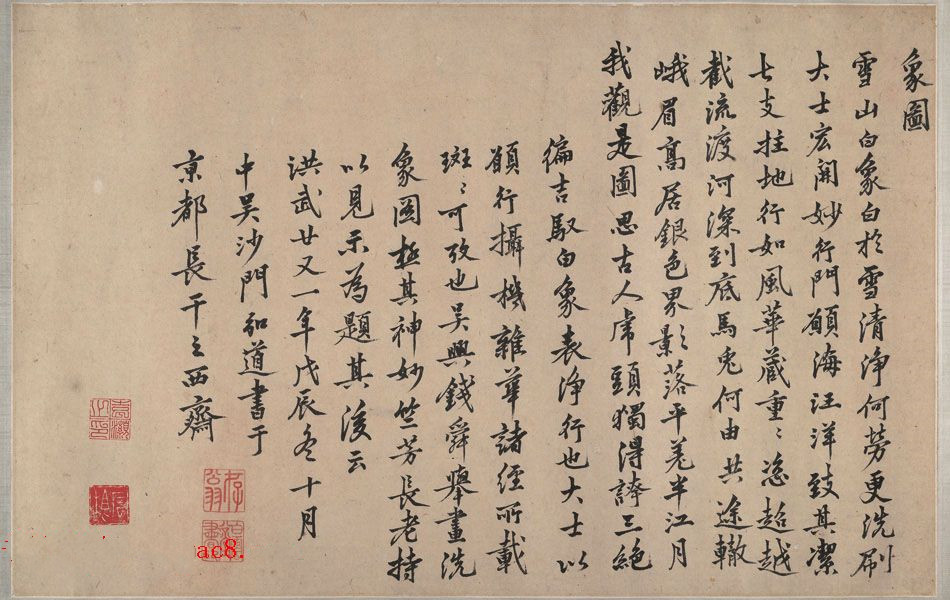 象圖
雪山白象白於雪清淨何勞更洗刷
大士宏開妙行門願海汪洋致其潔
七支拄地行如風華藏重〻恣超越
截流渡河深到底馬兎何由共途轍
峨眉髙居銀色界影落平羌半江月
我觀是圖思古人虎頭獨得誇三絕
徧吉馭白象表淨行也大士以
願行攝機雜華諸經所載
斑〻可攷也吳興錢舜舉畫洗
象圖極其神妙竺芳長老持
以見示為題其後云
洪武廿又一年戊辰冬十月
中吳沙門弘道書于
京都長干之西齋
存翁
ac8.